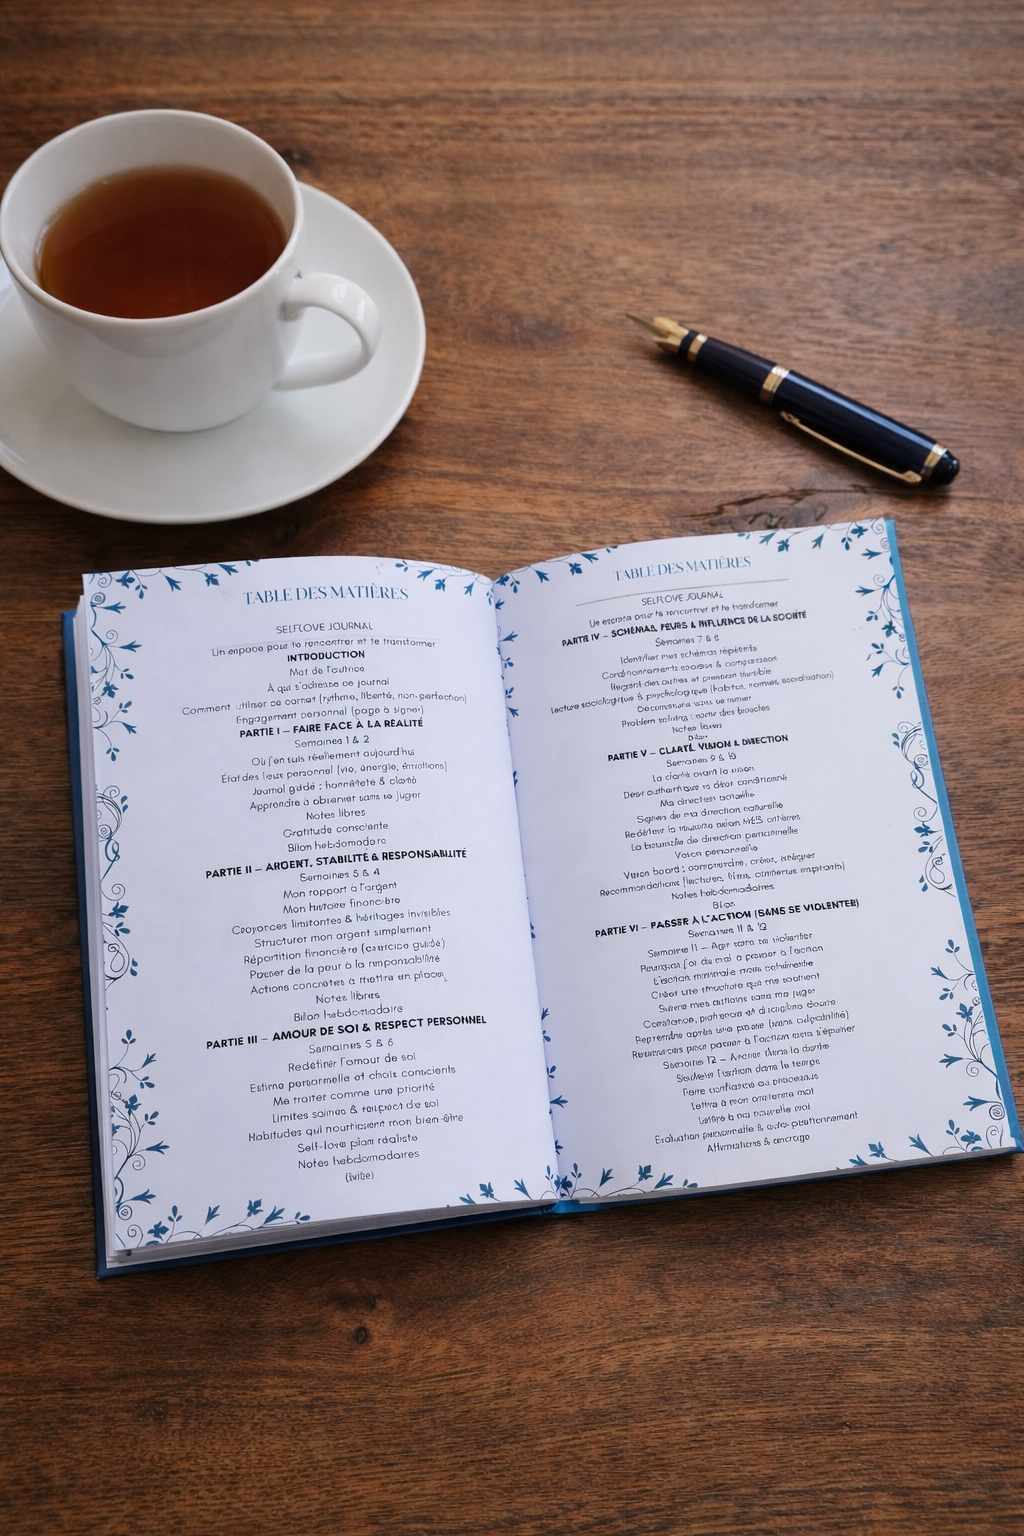 TABLE DES MATIÈRES
SELFLOVE JOURNAL
Un espace pour te rencontrer et te transformer
INTRODUCTION
Mot de l'autrice
À qui s'adresse ce journal
Comment utiliser ce carnet (rythme, liberté, non-perfection)
Engagement personnel (page à signer)
PARTIE I – FAIRE FACE À LA RÉALITÉ
Semaines 1 & 2
Où j'en suis réellement aujourd'hui
État des lieux personnel (vie, énergie, émotions)
Journal guidé : honnêteté & clarté
Apprendre à observer sans se juger
Notes libres
Gratitude consciente
Bilan hebdomadaire
PARTIE II – ARGENT, STABILITÉ & RESPONSABILITÉ
Semaines & 4
Mon rapport à l'argent
Mon histoire financière
Croyances limitantes & héritages invisibles
Structurer mon argent simplement
Répartition financière (exercice guidé)
Passer de la peur à la responsabilité
Actions concrètes à mettre en place
Notes libres
Bilan hebdomadaire
PARTIE III – AMOUR DE SOI & RESPECT PERSONNEL
Semaines 5 & 6
Redéfinir l'amour de soi
Estime personnelle et choix conscients
Me traiter comme une priorité
Limites saines & respect de soi
Habitudes qui nourrissent mon bien-être
Self-love plan réaliste
Notes hebdomadaires
TABLE DES MATIÈRES
SELFLOVE JOURNAL
Un espace pour te rencontrer et te transformer
PARTIE IV – SCHÉMAS, PEURS & INFLUENCE DE LA SOCIÉTÉ
Semaines 7 & 8
Identifier mes schémas répétés
Conditionnements sociaux & comparaison
Regard des autres et pression invisible
Lecture sociologique & psychologique (habitus, normes, socialisation)
Déconstruire sans se renier
Problem solving : sortir des boucles
Notes libres
PARTIE V – CLARTÉ, VISION & DIRECTION
Semaines 9 &
La clarté avant la vision
Désir authentique vs désir conditionné
Ma direction actuelle
Signes de ma direction naturelle
Redéfinir la réussite selon MES critères
La boussole de direction personnelle
Vision personnelle
Vision board : comprendre, créer, intégrer
Recommandations
Notes hebdomadaires
Bilan
PARTIE VI – PASSER À L'ACTION (SANS SE VIOLENTER)
Semaines 11 & 12
Semaine 11 – Agir sans se violenter
Pourquoi j'ai du mal à passer à l'action
L'action minimale mais cohérente
Créer une structure qui me soutient
Suivre mes actions sans me juger
Constance, patience et discipline douce
Reprendre après une pause (sans culpabilité)
Ressources pour passer à l'action sans s'épuiser
Semaine 12 – Ancrer dans la durée
l'action dans le temps
Faire confiance au processus
Lettre à mon ancienne moi
Lettre à ma nouvelle moi
Évaluation personnelle & auto-positionnement
Affirmations & ancrage